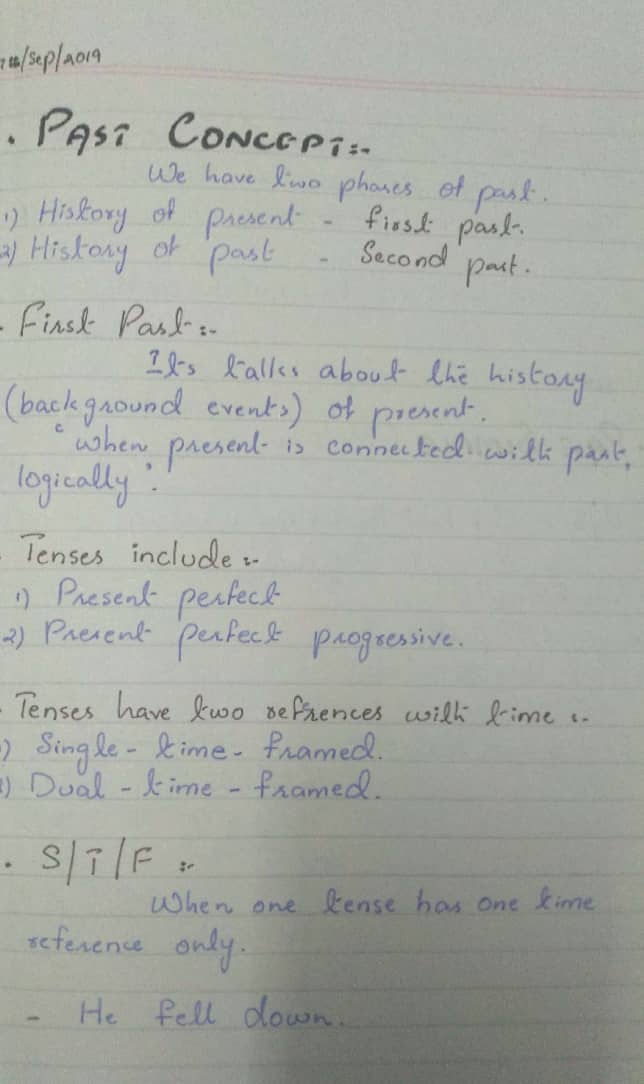 /Sep/2019
. PAST CONCEPT:-
We have two phases of past.
1) History of present - first past.
2) History of past - Second past.
. First Past:-
Its talks about the history
(background events) of present.
"when present is connected with past,
logically".
- Tenses include:-
1) Present perfect
2) Present perfect progressive.
- Tenses have two refrences with time:-
) Single-time-framed.
) Dual-time-framed.
. S/T/F:-
When one tense has one time
reference only.
- He fell down.